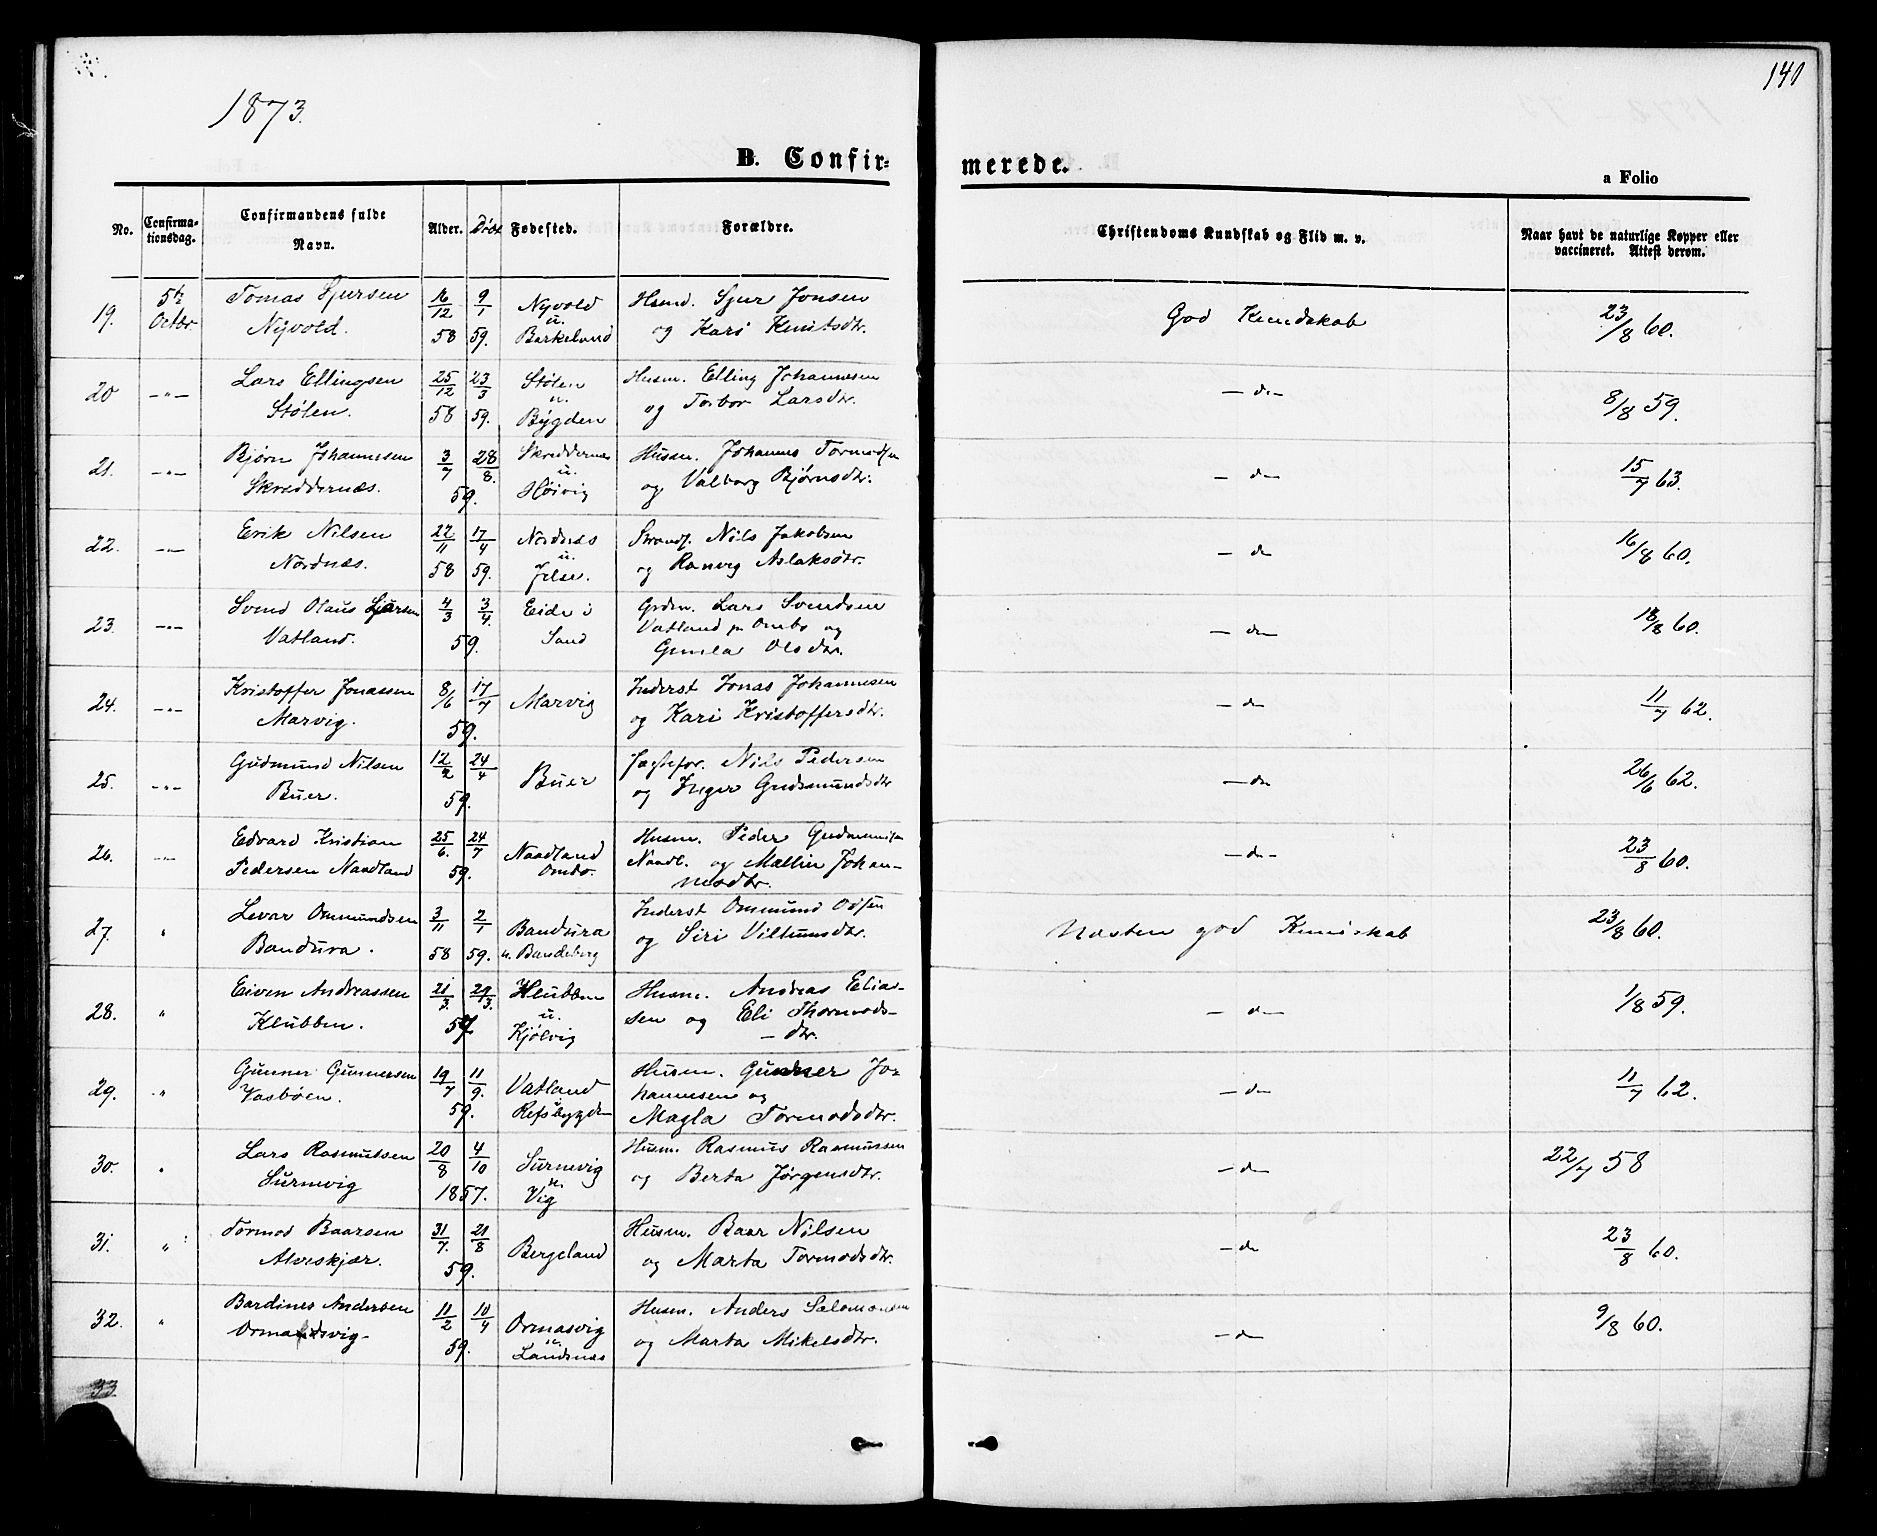 140
1873.
B. Confir-
merede.
a Folio
No.
Confirma-
tionsdag.
Confirmandens fulde
Navn.
Alder.
Døbt
Fødested.
Forældre.
Christendoms Kundskab og Flid m. v.
Naar havt de naturlige Kopper eller
vaccineret. Attest derom.
19. 5te Octbr Tomas Sjursen
Nyvold.
16/12 58 9/1 59.
Nyvold
u.
Barkeland
Husmd. Sjur Jonsen
og Kari Knutsdtr.
God Kundskab
23/8 60.
20 -"- Lars Ellingsen
Stølen.
25/12 58 23/3 59.
Stølen
u.
Bygden
Husm. Elling Johannesen
og Torbor Larsdtr.
- do -
8/8 59.
21. -"- Bjørn Johannesen
Skreddernæs.
3/7 28/8. 59.
Skreddernæs
u.
Høivig
Husm. Johannes Tormodsen
og Valborg Bjørnsdtr.
- do
15/7 63.
22. -"- Erik Nilsen
Nordnæs.
22/11 58 17/4 59.
Nordnæs
u.
Jelse.
Strands. Nils Jakobsen
og Ranveg Aslaksdtr.
- do
16/8 60.
23. -"- Svend Olaus Larsen
Vatland.
4/3 3/4. 59.
Eide i
Sand
Grdm. Lars Svendsen
Vatland p Ombo og
Gunla Olsdtr.
- do
18/8 60.
24. -"- Kristoffer Jonassen
Marvig.
8/6 17/7 59.
Marvig
Inderst Jonas Johannesen
og Kari Kristoffersdtr.
- do
11/7 62.
25. -"- Gudmund Nilsen
Buer.
12/2 24/4 59.
Buer
Jægtefør. Nils Pedersen
og Inger Gudmundsdtr
- do
26/6 62.
26. -"- Edvard Kristian
Pedersen Naadland
25/6. 24/7 59.
Naadland
Ombo.
Husm. Peder Gudmundsen
Naadl. og Mallin Johan-
nesdtr.
- do -
23/8 60.
27. " Levar Ommundsen
Bandura.
3/11 58 2/1 59.
Bandura
u. Bandeberg
Inderst Ommund Odsen
og Siri Viltumsdtr.
Næsten god Kundskab
23/8 60.
28. " Eiven Andreassen
Klubben.
21/3. 29/3. 59.
Klubben
u.
Kjølvig
Husm. Andreas Elias-
sen og Eli Thormods-
- dtr.
- do
1/8 59.
29. " Gunner Gunnersen
Vasbøen.
19/7 11/9. 59.
Vatland
Refsbygden
Husm. Gunner Jo-
hannesen og
Magla Tormodsdtr.
- do
11/7 62.
30. " Lars Rasmussen
Surnevig
20/8 4/10 1857.
Surnevig
u.
Vig
Husm. Rasmus Rasmussen
og Berta Jørgensdtr.
- do
22/7 58
31. " Tormod Baarsen
Alveskjær.
31/7. 21/8 59.
Bergeland
Husm. Baar Nilsen
og Marta Tormodsdtr.
- do
23/8 60.
32. " Bardines Andersen
Ormasvig-
11/2 10/4 59.
Ormasvig
u.
Landsnæs
Husm. Anders Salomonsen
og Marta Mikelsdtr.
- do
9/8 60.
33